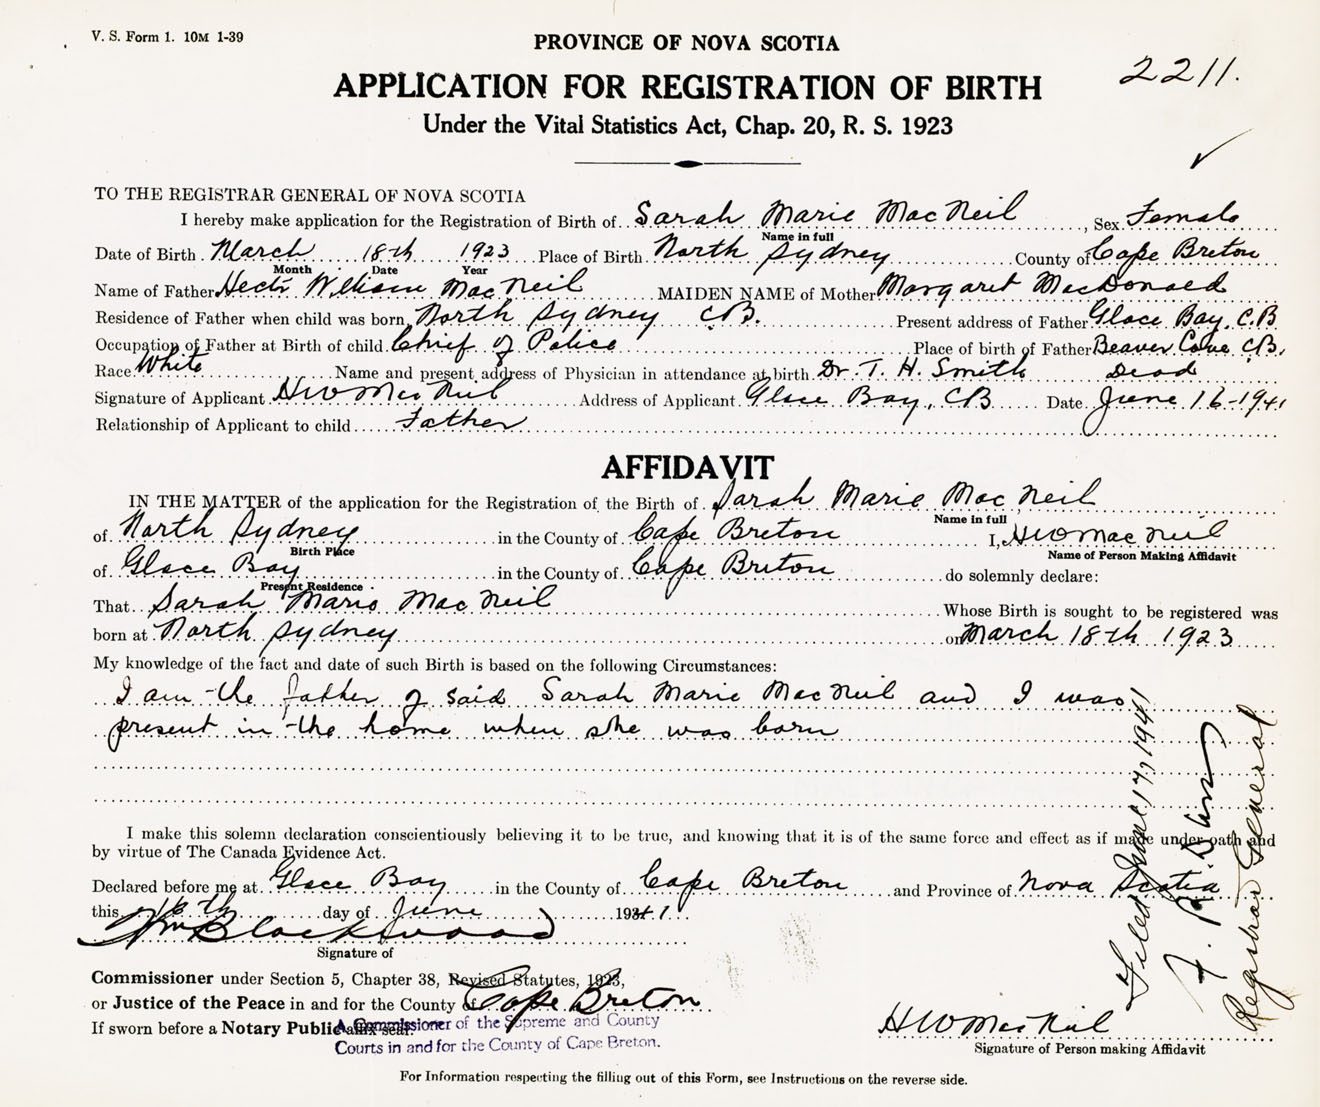 V. S. Form 1. 10M 1-39
PROVINCE OF NOVA SCOTIA
2211.
APPLICATION FOR REGISTRATION OF BIRTH
Under the Vital Statistics Act, Chap. 20, R. S. 1923
✓
TO THE REGISTRAR GENERAL OF NOVA SCOTIA
I hereby make application for the Registration of Birth of Sarah Marie MacNeil, Sex Female
Name in full
Date of Birth March 18th 1923 Place of Birth North Sydney County of Cape Breton
Month Date Year
Name of Father Hector William MacNeil MAIDEN NAME of Mother Margaret MacDonald
Residence of Father when child was born North Sydney C.B. Present address of Father Glace Bay, C.B
Occupation of Father at Birth of child Chief of Police Place of birth of Father Beaver Cove C.B.
Race White Name and present address of Physician in attendance at birth Dr. T. H. Smith Dead
Signature of Applicant H W MacNeil Address of Applicant Glace Bay, C.B Date June 16-1941
Relationship of Applicant to child Father
AFFIDAVIT
IN THE MATTER of the application for the Registration of the Birth of Sarah Marie MacNeil
Name in full
of North Sydney in the County of Cape Breton I, H W MacNeil
Birth Place Name of Person Making Affidavit
of Glace Bay in the County of Cape Breton do solemnly declare:
Present Residence
That Sarah Marie MacNeil Whose Birth is sought to be registered was
born at North Sydney on March 18th 1923
My knowledge of the fact and date of such Birth is based on the following Circumstances:
I am the father of said Sarah Marie MacNeil and I was
present in the home when she was born
I make this solemn declaration conscientiously believing it to be true, and knowing that it is of the same force and effect as if made under oath and
by virtue of The Canada Evidence Act.
Declared before me at Glace Bay in the County of Cape Breton and Province of Nova Scotia
this 16th day of June 1941.
Wm Blackwood
Signature of
Commissioner under Section 5, Chapter 38, Revised Statutes, 1923,
or Justice of the Peace in and for the County of Cape Breton
If sworn before a Notary Public affix seal.
A Commissioner of the Supreme and County
Courts in and for the County of Cape Breton.
H W MacNeil
Signature of Person making Affidavit
For Information respecting the filling out of this Form, see Instructions on the reverse side.
Filed June 17, 1941
Registrar General